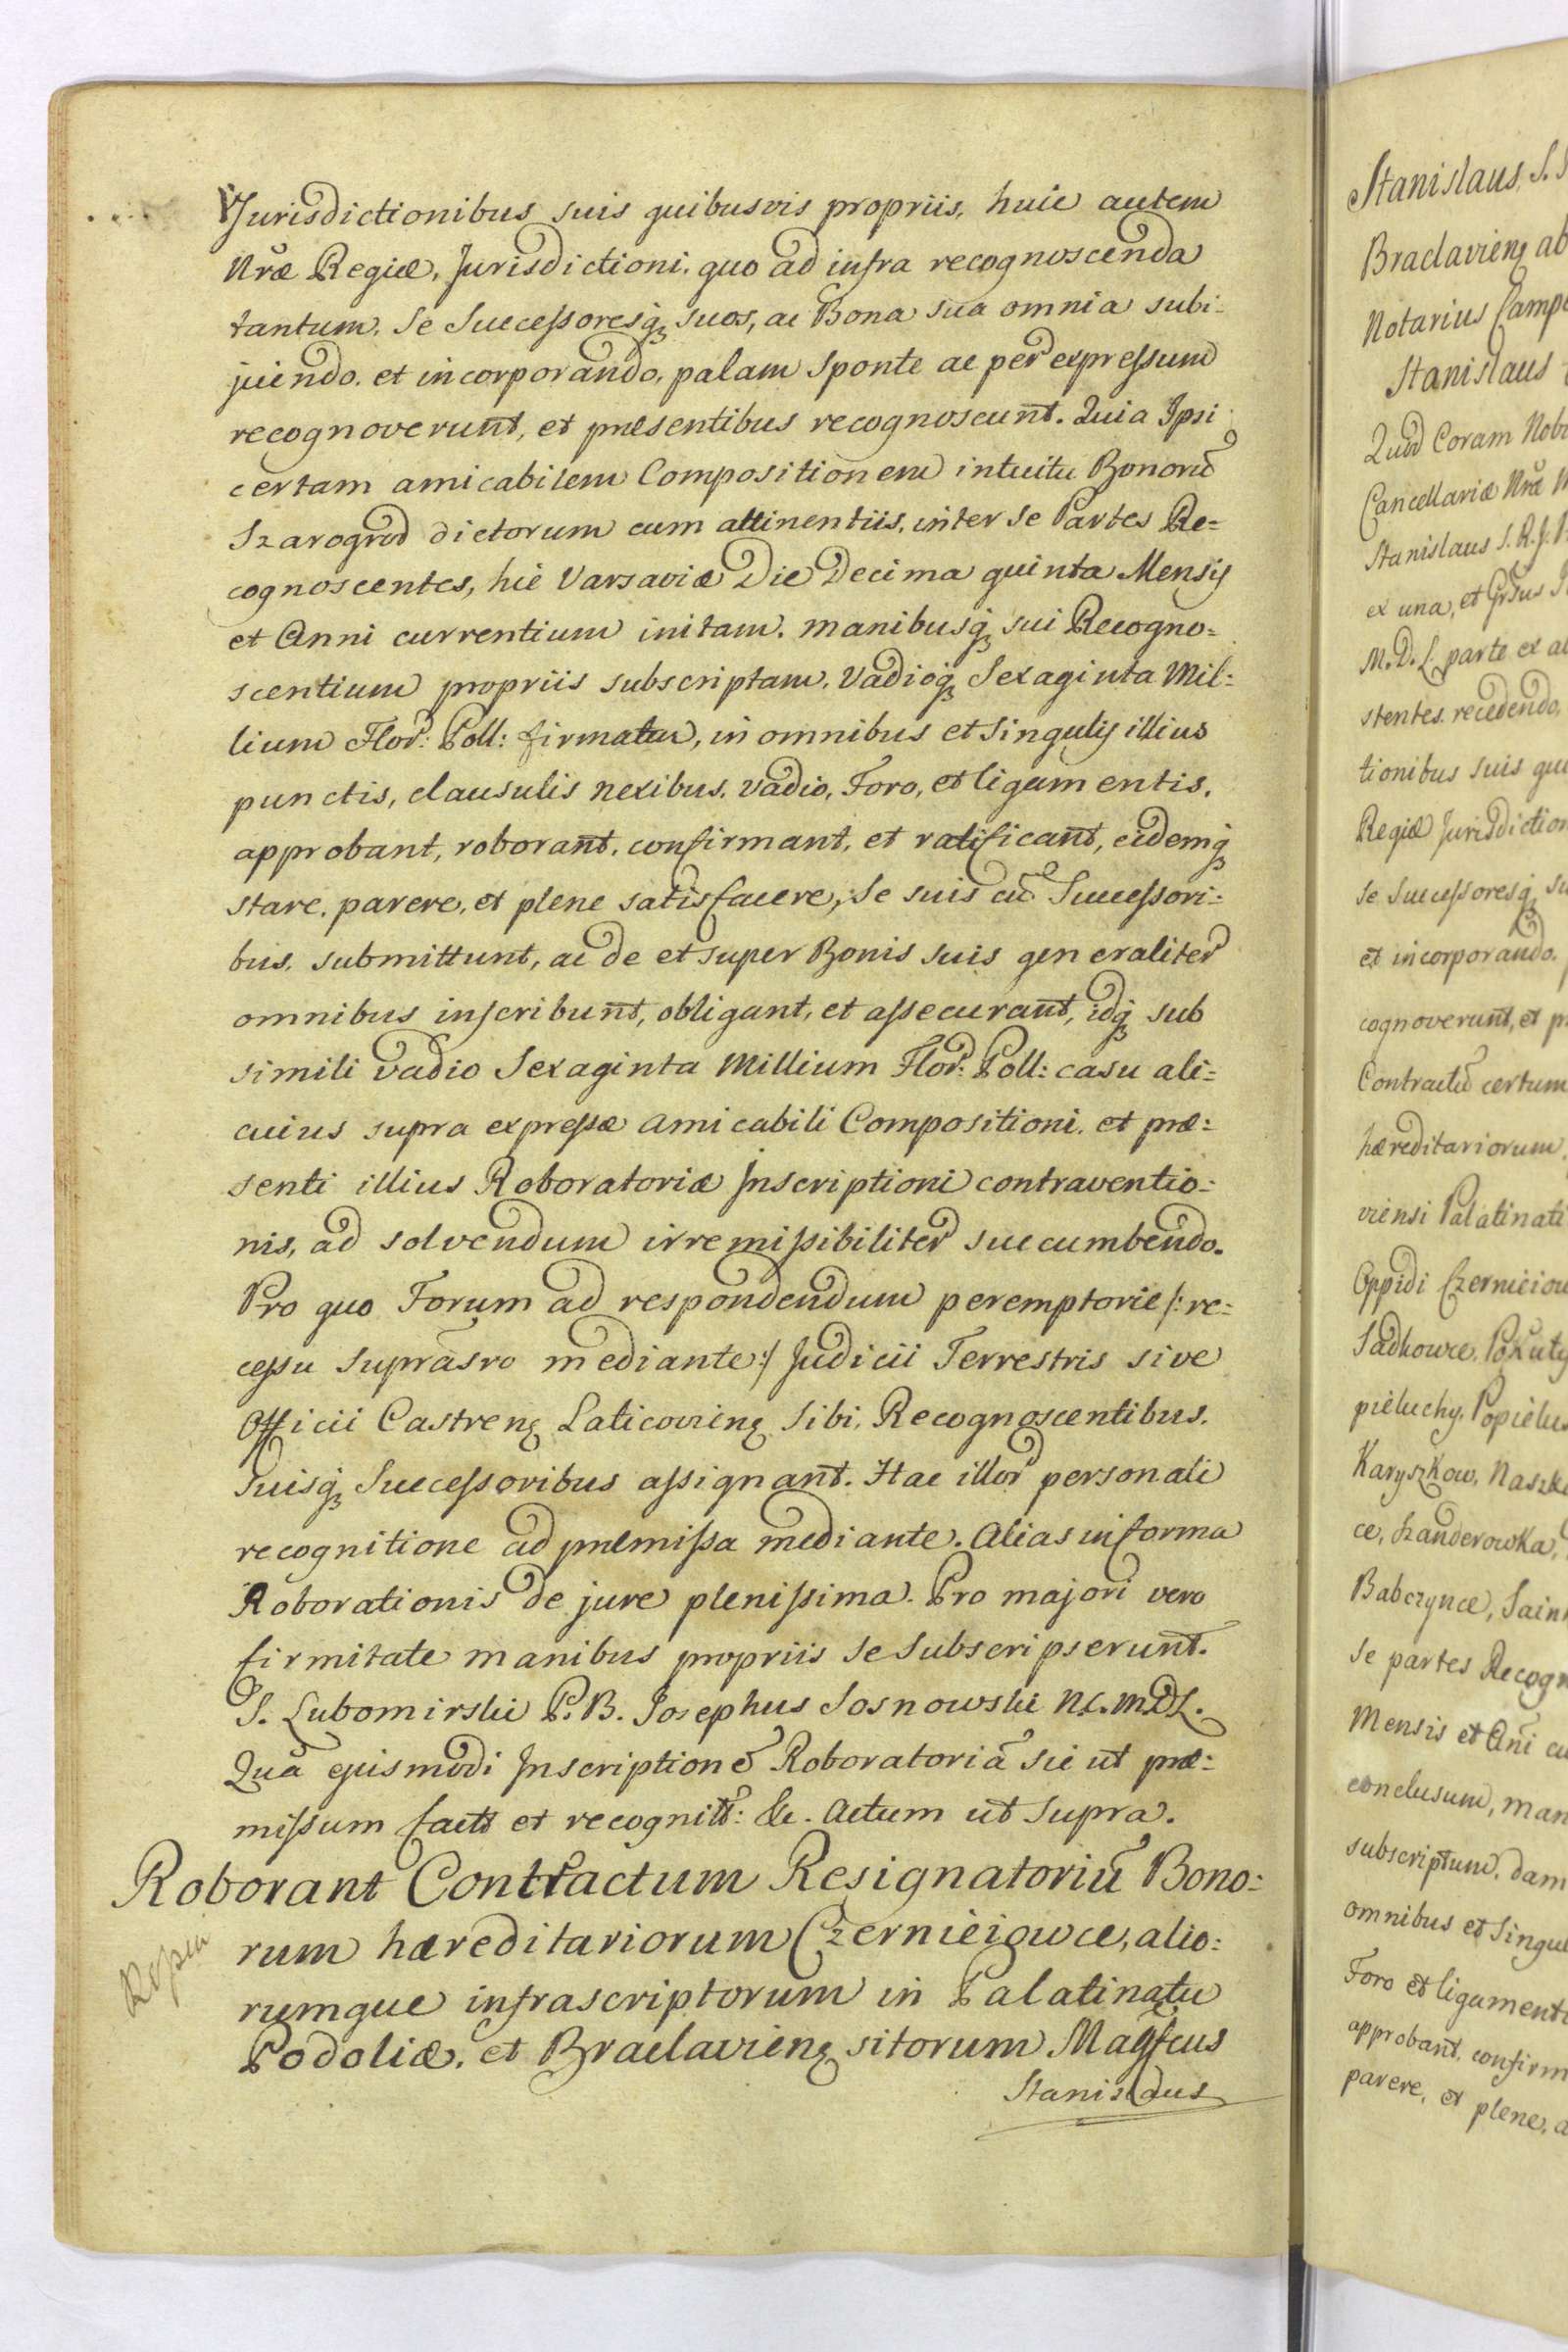 Jurisdictionibus suis quibusvis propriis, huic autem
Nræ Regiæ, Jurisdictioni, quo ad infra recognoscenda
tantum, Se Successoresq; suos, ac Bona sua omnia subi-
jiendo, et incorporando, palam Sponte ac per expressum
recognoverunt, et præsentibus recognoscunt. Quia Ipsi
certam amicabilem Compositionem intuitu Bonorũ
Szarogrod dictorum cum attinentiis, inter Se Partes Re=
cognoscentes, hic Varsaviæ Die Decima quinta Mensis
et Anni currentium initam, manibusq; sui Recogno=
scentium propriis subscriptam, Vadioq; Sexaginta Mil=
lium Flor: Poll: firmatam, in omnibus et Singulis illius
punctis, clausulis nexibus, vadio, Foro, et ligamentis,
approbant, roborant, confirmant, et ratificant, eidemq;
stare, parere, et plene satisfacere, Se suis cũ Successori=
bus, submittunt, ac de et super Bonis suis generaliter
omnibus inscribunt, obligant, et assecurant, idq; sub
simili vadio Sexaginta Millium Flor: Poll: casu ali=
cuius supra expressæ amicabili Compositioni, et præ=
senti illius Roboratoriæ Inscriptioni contraventio=
nis, ad solvendum irremissibiliter succumbendo.
Pro quo Forum ad respondendum peremptorie /: re=
cessu suprasro mediante :/ Judicii Terrestris sive
Officii Castren; Laticovien; Sibi, Recognoscentibus,
Suisq; Successoribus assignant. Hac illor personali
recognitione ad præmissa mediante. Alias in forma
Roborationis de jure plenissima. Pro majori vero
firmitate manibus propriis se subscripserunt.
S. Lubomirski P. B. Josephus Sosnowski N. C. M. D. L.
Quã ejusmodi Inscriptionẽ Roboratoriã sic ut præ=
missum fact et recognitt: &c. Actum ut Supra.
Roborant Contractum Resignatoriũ Bono=
rum hæreditariorum Czernieiowce, alio=
rumque infrascriptorum in Palatinatu
Podoliæ, et Braclavien; sitorum Magfcus
Stanislaus
Stanislaus, S.
Braclavien; ab
Notarius Camp
Stanislaus
Quod Coram Nob
Cancellariæ Nræ
Stanislaus S. R. J.
ex una, et
M. D. L. parte ex al
stentes recedendo,
tionibus suis qui
Regiæ Jurisdiction
Se Successoresq; su
et incorporando,
cognoverunt, et p
Contractũ certum
hæreditariorum,
viensi Palatinati
Oppidi Czernieiow
Sadkowce, Pokuty
pieluchy, Popielu
Karyszkow, Naszk
ce, Szanderowka,
Babczynce,
Se partes Recogn
Mensis et Añi cu
conclusum, man
subscriptum,
omnibus et Singul
Foro et ligament
approbant, confirm
parere, et plene, a